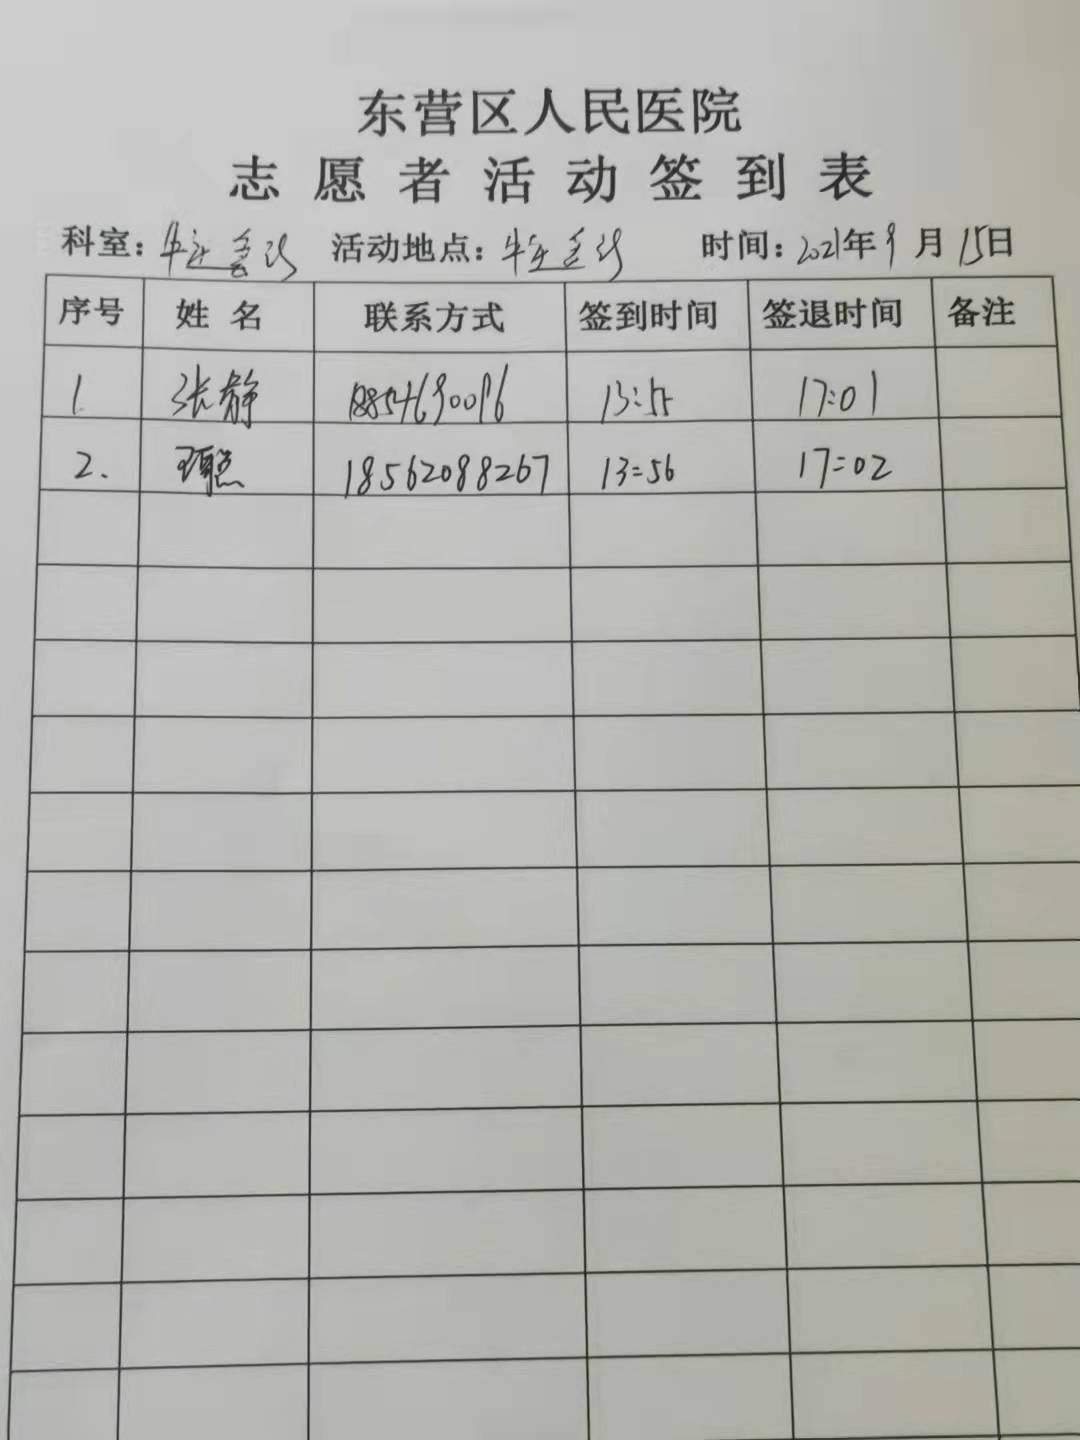 东营区人民医院
志愿者活动签到表
科室: 活动地点: 时间: 2021年9月15日
序号 姓名 联系方式 签到时间 签退时间 备注
1. 张静 13:55 17:01
2. 18562088267 13:56 17:02